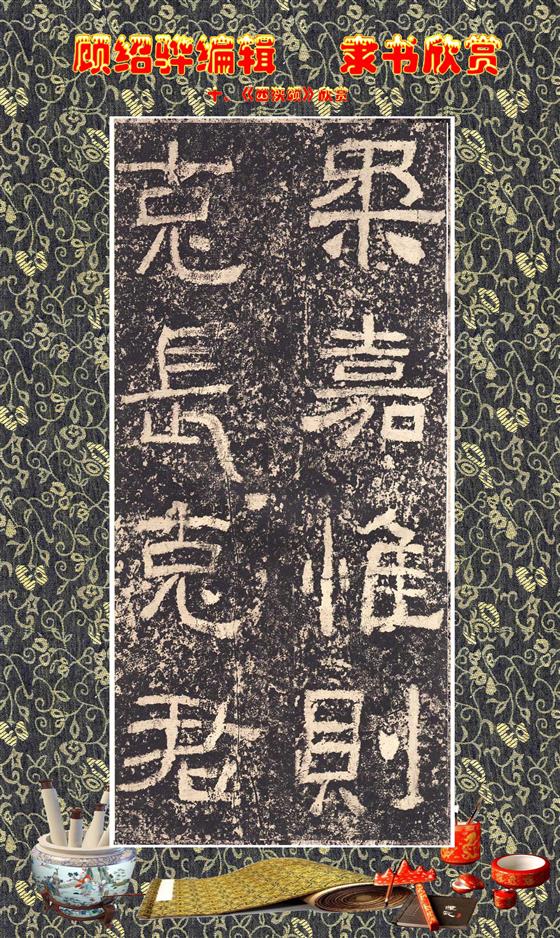 顾绍骅编辑 隶书欣赏
十、《西狭颂》欣赏
柔嘉惟則
克長克君